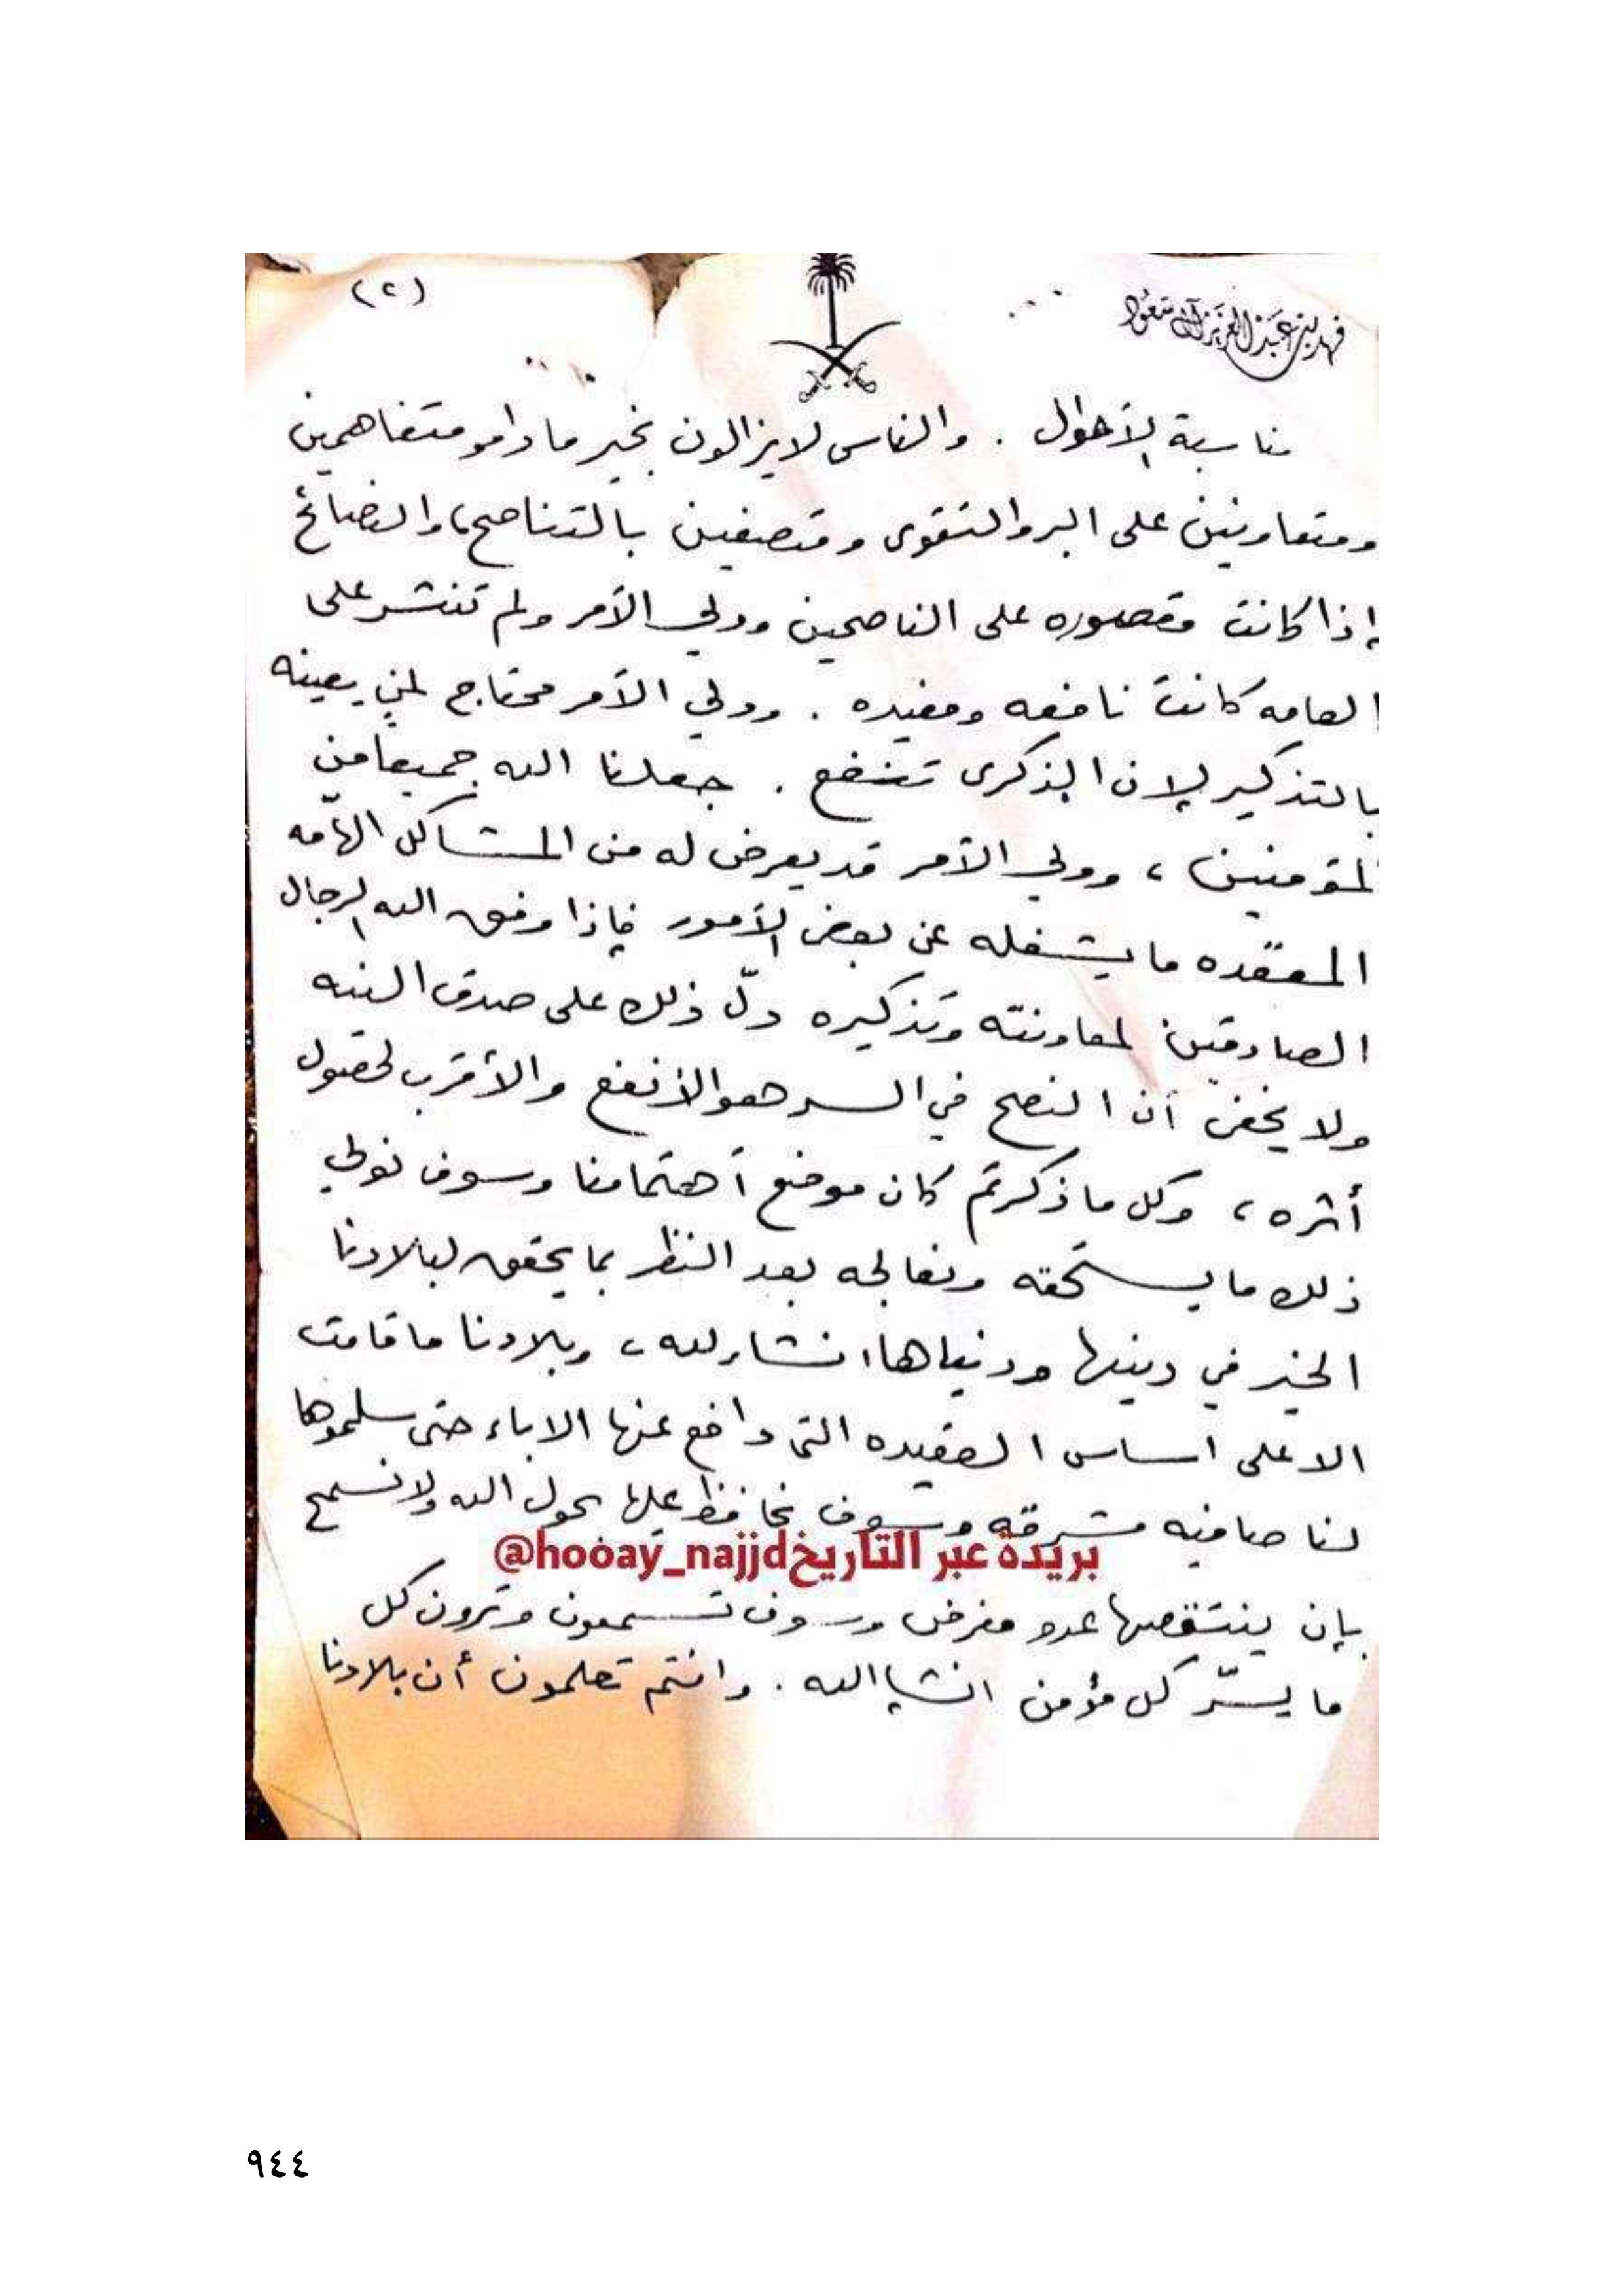 (٢)
فهد بن عبد العزيز آل سعود
مناسبة الأحوال . والناس لايزالون بخير ما دامو متفاهمين
ومتعاونين على البر والتقوى ومتصفين بالتناصح، والنصائح
إذا كانت مقصوره على الناصحين وولي الأمر ولم تنتشر على
العامه كانت نافعه ومفيده . وولي الأمر محتاج لمن يعينه
بالتذكير لإن الذكرى تنفع . جعلنا الله جميعاً من
المؤمنين ، وولي الأمر قد يعرض له من المشاكل الهامّه
المعقّده ما يشغله عن بعض الأمور فإذا وفق الله الرجال
الصادقين لمعاونته وتذكيره دلّ ذلك على صدق النيه
ولا يخفى أن النصح في السر هو الأنفع والأقرب لحصول
أثره ، وكل ما ذكرتم كان موضع أهتمامنا وسوف نولي
ذلك ما يستحقه ونعالجه بعد النظر بما يحقق لبلادنا
الخير في دينها ودنياها انشاء الله ، وبلادنا ما قامت
الا على اساس العقيده التى دافع عنها الاباء حتى سلموها
لنا صافيه مشرقه وسوف نحافظ عليها بحول الله ولا نسمح
بريدة عبر التاريخ@hooay_najjd
بإن ينتقصها عدو مغرض وسوف تسمعون وترون كل
ما يسّر كل مؤمن انشاء الله . وانتم تعلمون أن بلادنا
٩٤٤